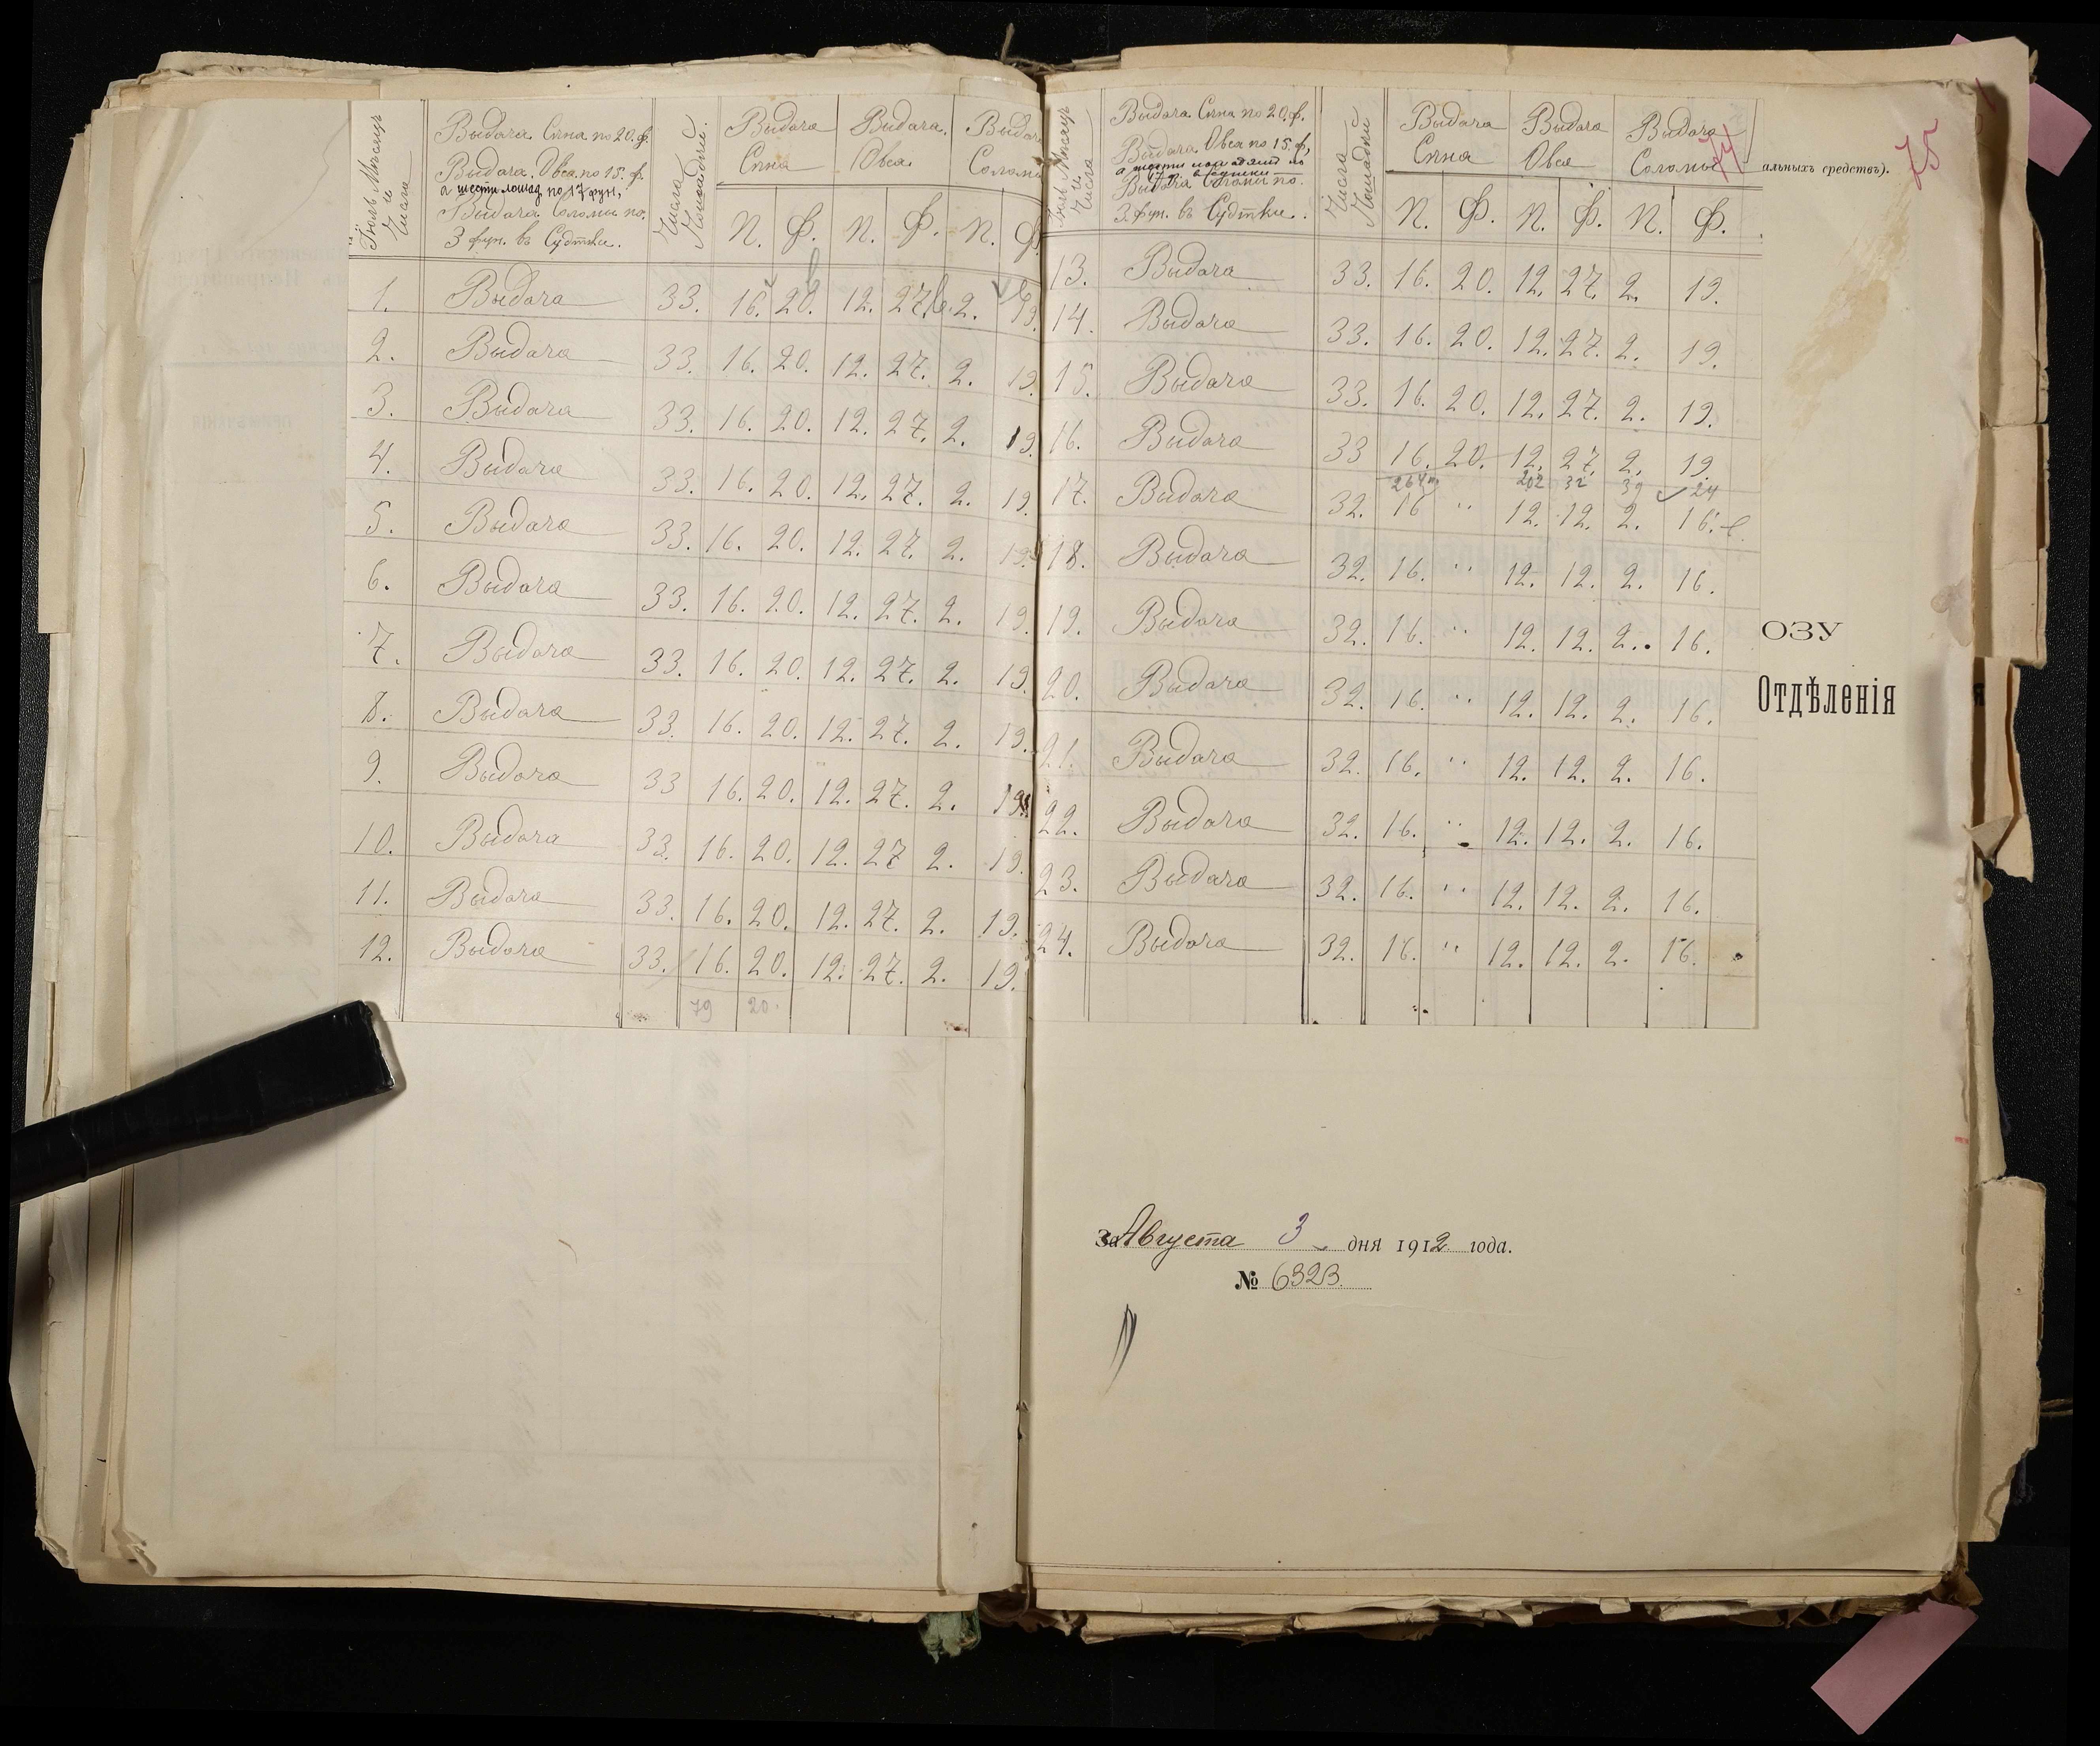 Іюль Мѣсяцъ
и
Числа
Выдача Сѣна по 20. ф.
Выдача. Овса. по 15. ф.
а шести лошад. по 17 фун,
Выдача Соломы по.
3 фун. въ Сутки.
Числа
Лошадей.
Выдача
Сѣна
Выдача.
Овса.
Выдач
Солом
П. Ф. П. Ф. П. Ф.
1. Выдача 33. 16. 20. 12. 27. 2. 19.
2. Выдача 33. 16. 20. 12. 27. 2. 19.
3. Выдача 33. 16. 20. 12. 27. 2. 19.
4. Выдача 33. 16. 20. 12. 27. 2. 19.
5. Выдача 33. 16. 20. 12. 27. 2. 19.
6. Выдача 33. 16. 20. 12. 27. 2. 19.
7. Выдача 33. 16. 20. 12. 27. 2. 19.
8. Выдача 33. 16. 20. 12. 27. 2. 19.
9. Выдача 33 16. 20. 12. 27. 2. 19.
10. Выдача 33. 16. 20. 12. 27 2. 19.
11. Выдача 33. 16. 20. 12. 27. 2. 19.
12. Выдача 33. 16. 20. 12. 27. 2. 19.
79 20.
Іюль Мѣсяцъ
и
Числа
Выдача Сѣна по 20. ф.
Выдача. Овса по 15. ф,
а шести
17
Выдача Соломы по.
3. фун. въ Сутки.
Числа
Лошадей
Выдача
Сѣна
Выдача
Овса
Выдача
Соломы
74
альныхъ средствъ).
75
П. Ф. П. Ф. П. Ф.
13. Выдача 33. 16. 20. 12. 27. 2. 19.
14. Выдача 33. 16. 20. 12. 27. 2. 19.
15. Выдача 33. 16. 20. 12. 27. 2. 19.
16. Выдача 33 16. 20. 12. 27. 2. 19.
264 202 32 39 24
17. Выдача 32. 16 " 12. 12. 2. 16.
18. Выдача 32. 16. " 12. 12. 2. 16.
19. Выдача 32. 16. " 12. 12. 2. 16.
20. Выдача 32. 16. " 12. 12. 2. 16.
21. Выдача 32. 16. " 12. 12. 2. 16.
22. Выдача 32. 16. " 12. 12. 2. 16.
23. Выдача 32. 16. " 12. 12. 2. 16.
24. Выдача 32. 16. " 12. 12. 2. 16.
ОЗУ
Отдѣленія
За Августа 3 дня 1912 года.
№ 6323.